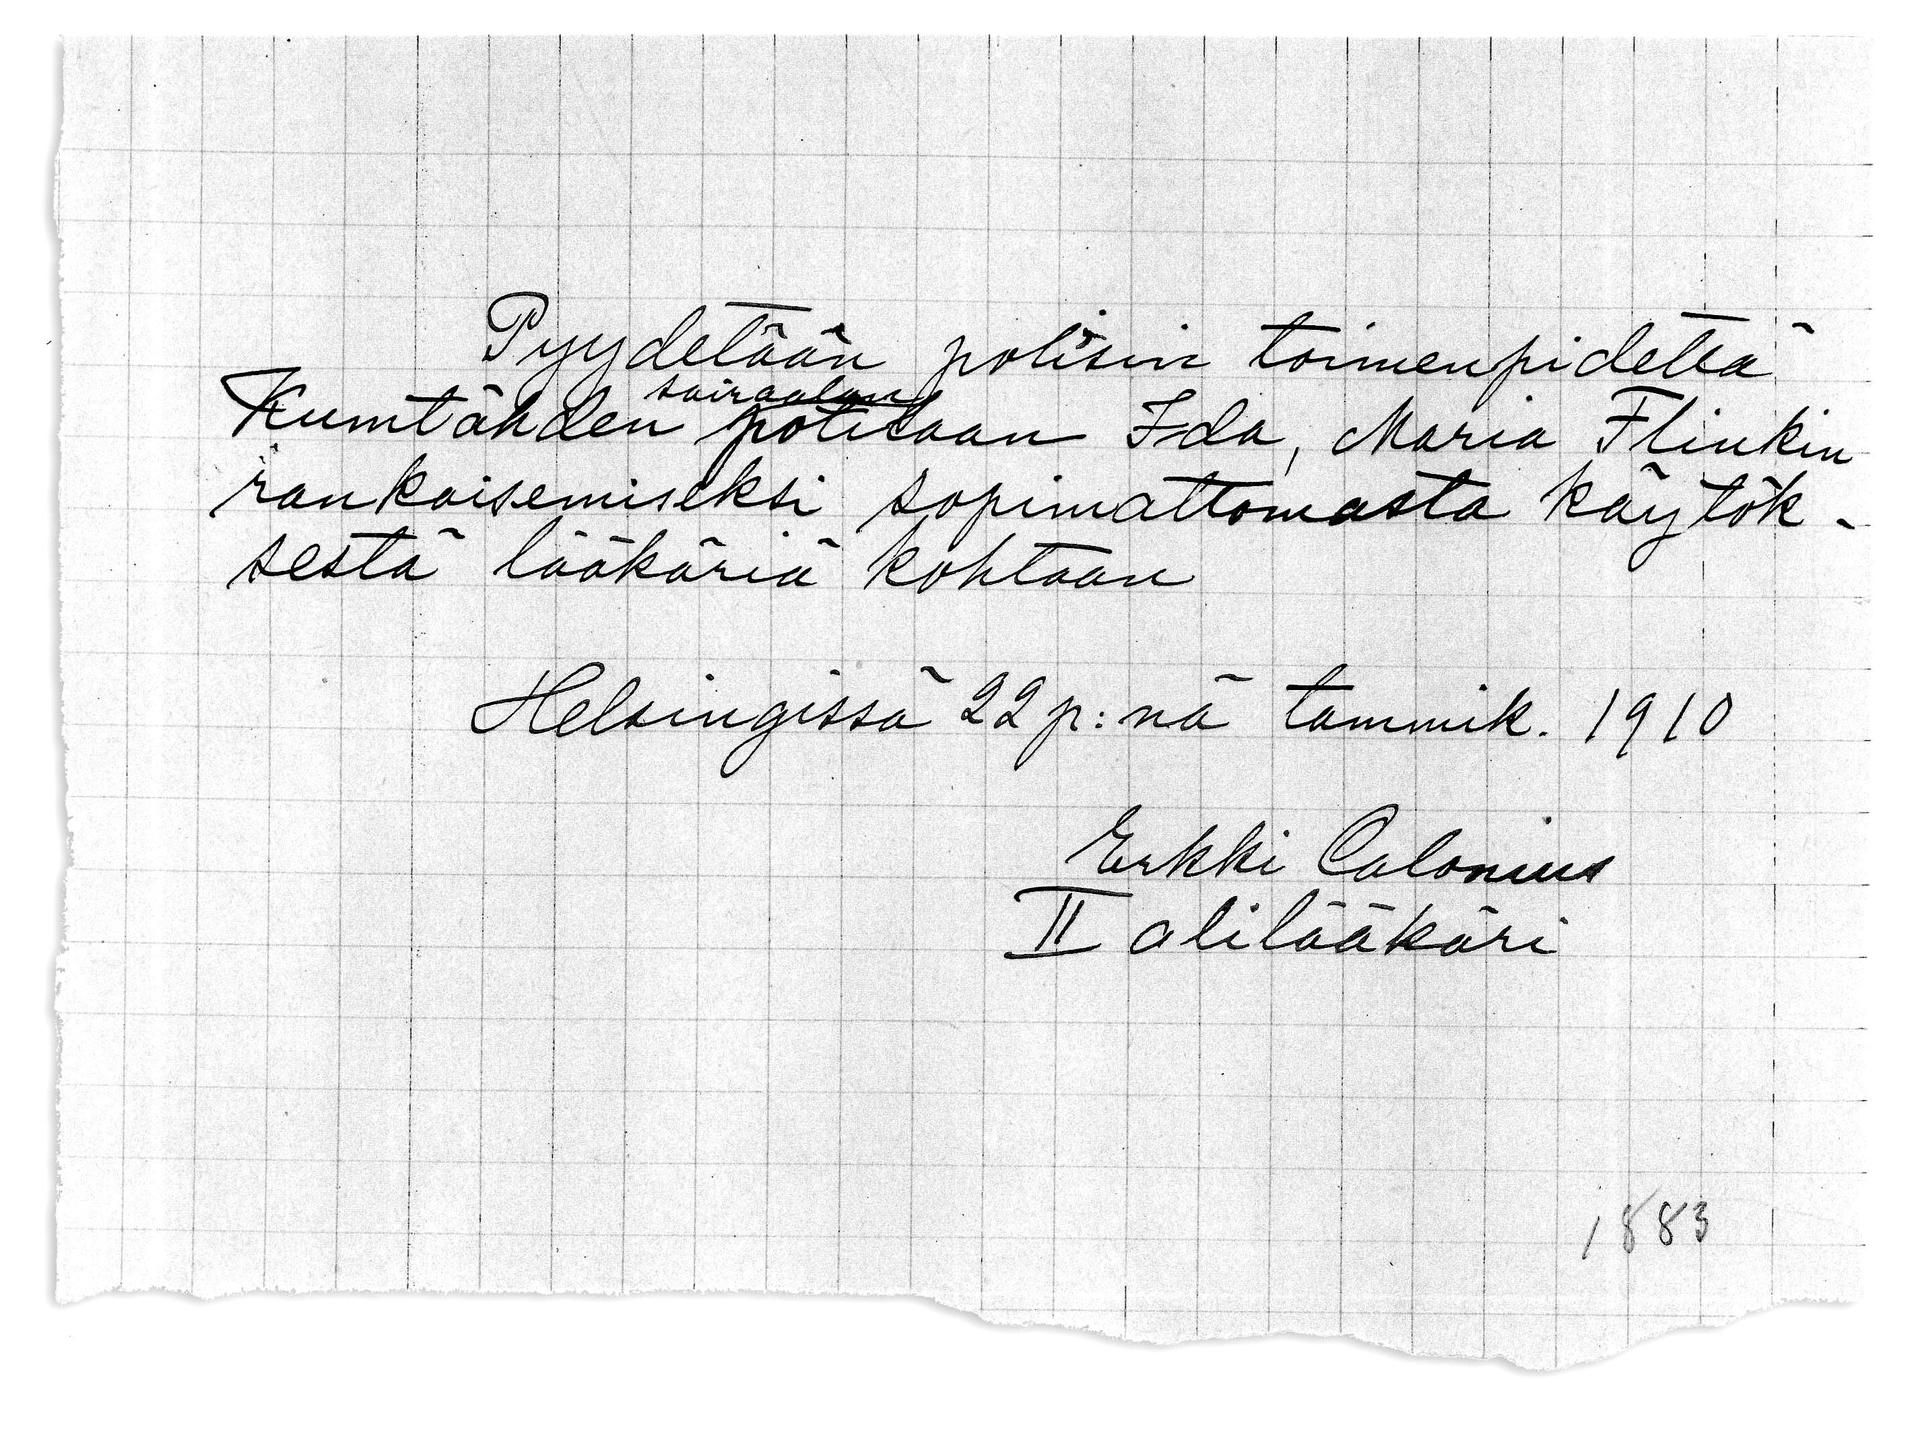 Pyydetään polisin toimenpidettä
sairaalan
Kumtähden potilaan Ida, Maria Flinkin
rankaisemiseksi sopimattomasta käytök-
sestä lääkäriä kohtaan
Helsingissä 22 p:nä tammik. 1910
Erkki Calonius
II alilääkäri
1883